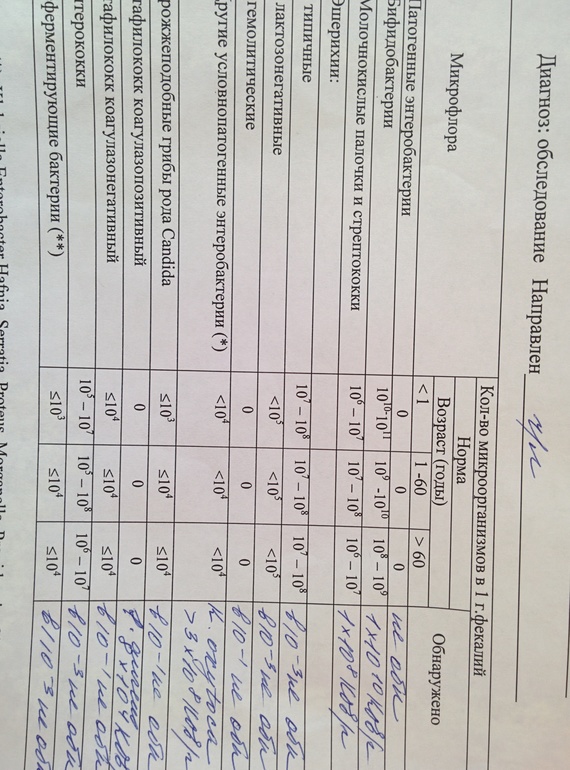 Диагноз: обследование Направлен ч/л
Микрофлора Кол-во микроорганизмов в 1 г.фекалий
Норма Обнаружено
Возраст (годы)
< 1 1 -60 > 60
Патогенные энтеробактерии 0 0 0 не обн
Бифидобактерии 10¹⁰-10¹¹ 10⁹ -10¹⁰ 10⁸ – 10⁹ 1×10¹⁰ КОЕ/г
Молочнокислые палочки и стрептококки 10⁶ – 10⁷ 10⁷ – 10⁸ 10⁶ – 10⁷ 1×10⁸ КОЕ/г
Эшерихии:
типичные 10⁷ – 10⁸ 10⁷ – 10⁸ 10⁷ – 10⁸ в 10⁻³ не обн
лактозонегативные <10⁵ <10⁵ <10⁵ в 10⁻³ не обн
гемолитические 0 0 0 в 10⁻¹ не обн
ругие условнопатогенные энтеробактерии (*) <10⁴ <10⁴ <10⁴ K. oxytoca
>3×10⁸ КОЕ/г
рожжеподобные грибы рода Candida ≤10³ ≤10⁴ ≤10⁴ в 10⁻¹ не обн
тафилококк коагулазопозитивный 0 0 0 ×10⁴ КОЕ
тафилококк коагулазонегативный ≤10⁴ ≤10⁴ ≤10⁴ в 10⁻¹ не обн
терококки 10⁵ – 10⁷ 10⁵ – 10⁸ 10⁶ – 10⁷ в 10⁻³ не обн
ферментирующие бактерии (**) ≤10³ ≤10⁴ ≤10⁴ в 10⁻³ не обн
Klebsiella Enterobacter Hafnia, Serratia, Proteus, Morganella